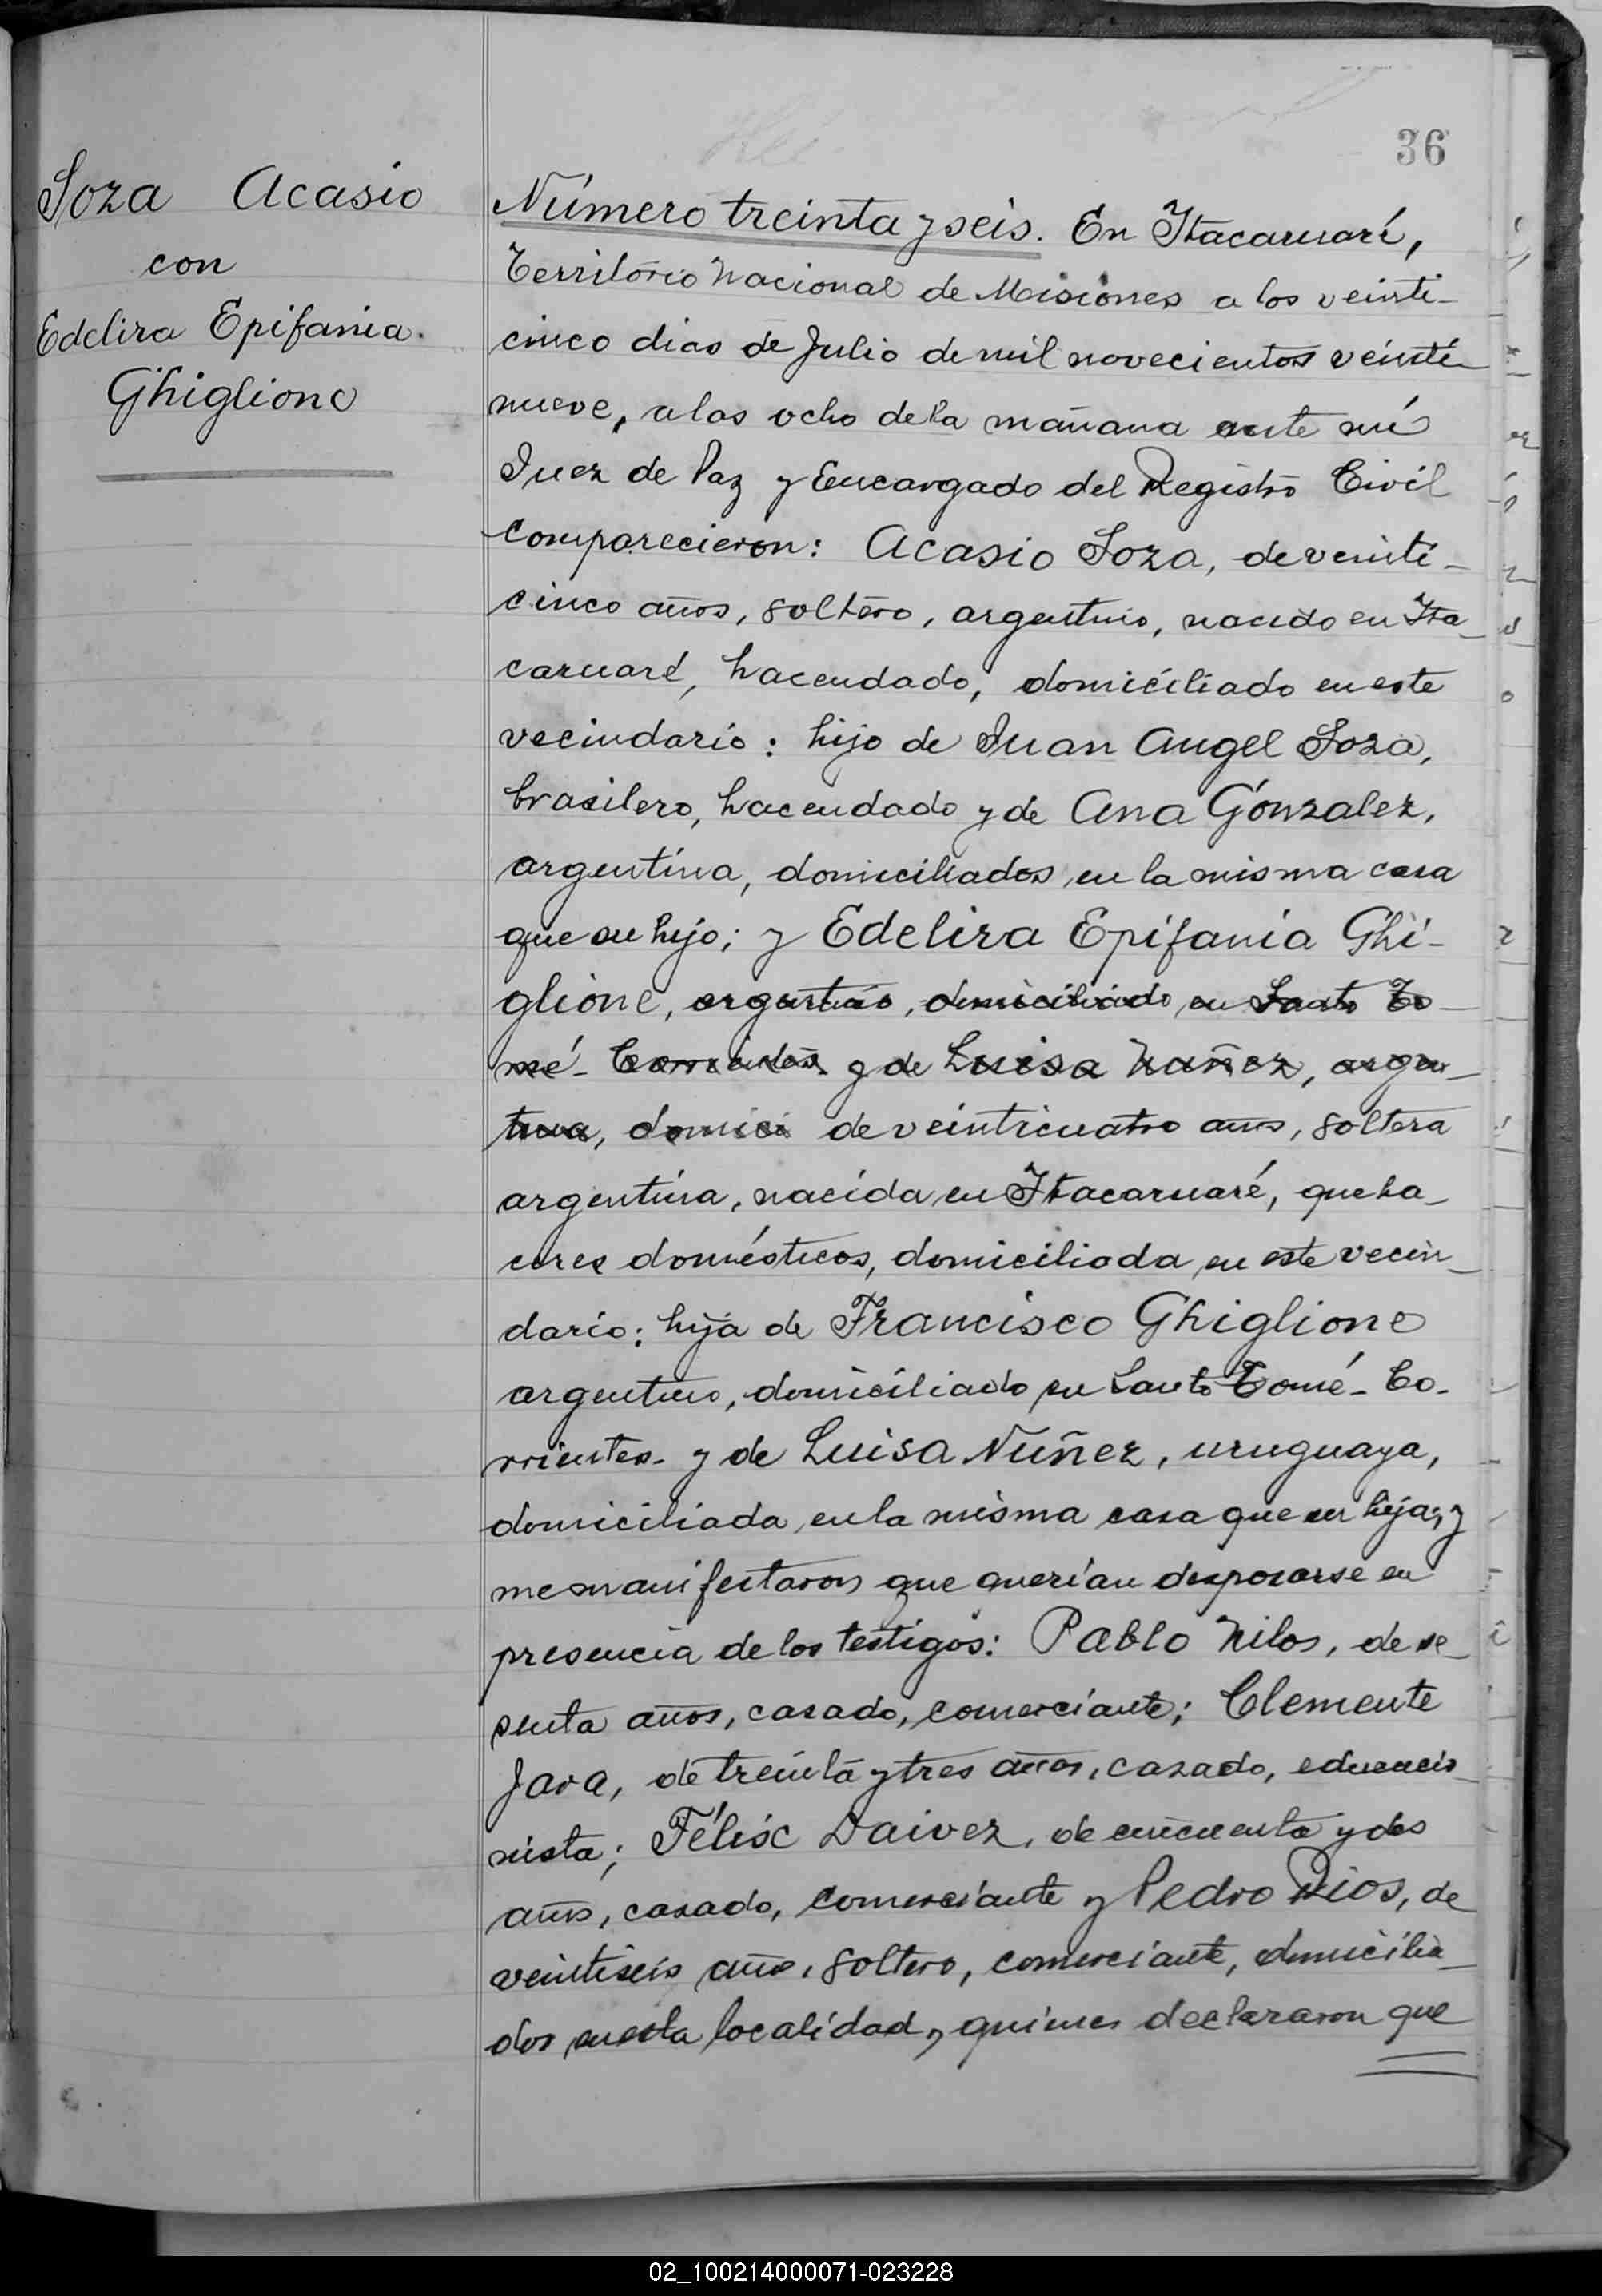 36
Soza Acasio
con
Edelira Epifania
Ghiglione
Número treinta y seis. En Itacaruaré,
Territorio Nacional de Misiones a los veinti-
cinco dias de Julio de mil novecientos veinti-
nueve, a las ocho de la mañana ante mí
Juez de Paz y Encargado del Registro Civil
comparecieron: Acasio Soza, de veinti-
cinco años, soltero, argentino, nacido en Ita-
caruaré, hacendado, domiciliado en este
vecindario: hijo de Juan Angel Soza,
brasilero, hacendado y de Ana Gónzalez,
argentina, domiciliados en la misma casa
que su hijo; y Edelira Epifania Ghi-
glione, argentino, domiciliado en Santo To-
mé- Corrientes- y de Luisa Nuñez, argen-
tina, domici de veinticuatro años, soltera
argentina, nacida en Itacaruaré, queha-
ceres domésticos, domiciliada en este vecin-
dario: hija de Francisco Ghiglione
argentino, domiciliado en Santo Tomé- Co-
rrientes- y de Luisa Nuñez, uruguaya,
domiciliada en la misma casa que su hija; y
me manifestaron que querían desposarse en
presencia de los testigos: Pablo Nilos, de se-
senta años, casado, comerciante; Clemente
Jara, de treinta y tres años, casado, educacio-
nista; Félix Daivez, de cincuenta y dos
años, casado, comerciante y Pedro Rios, de
veintiseis años, soltero, comerciante, domicilia-
dos en esta localidad, quienes declararon que
02_100214000071-023228